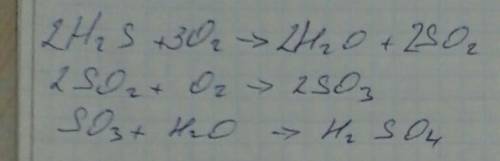 2H₂S + 3O₂ → 2H₂O + 2SO₂
2SO₂ + O₂ → 2SO₃
SO₃ + H₂O → H₂SO₄